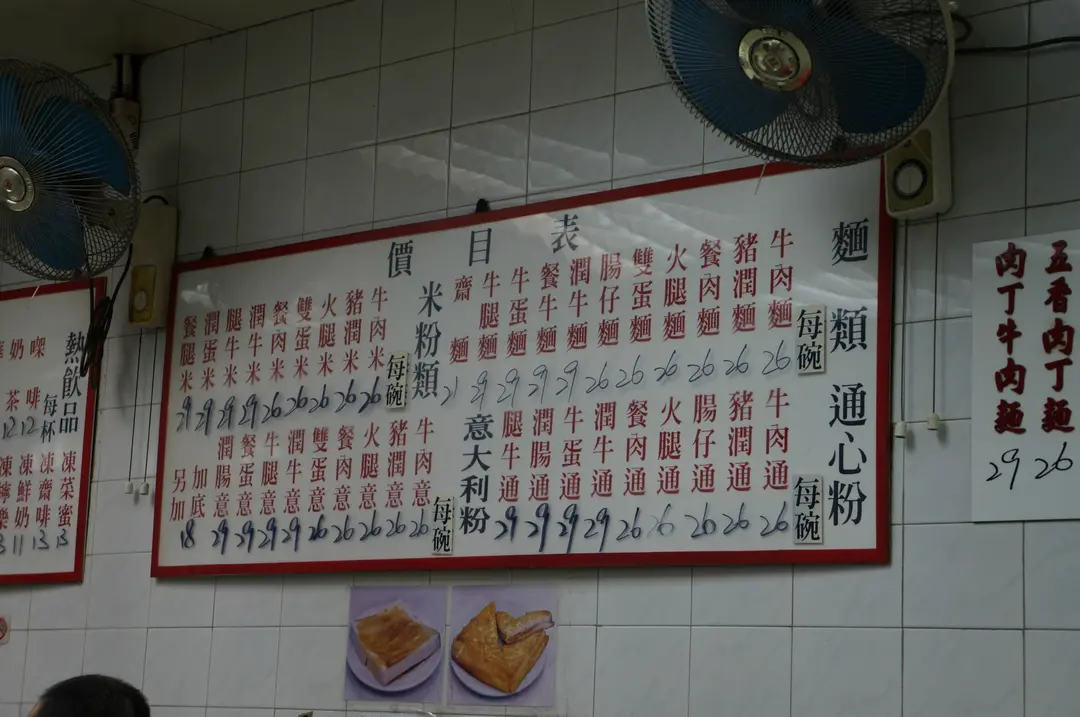 價目表
麵類
每碗
牛肉麵 26
豬潤麵 26
餐肉麵 26
火腿麵 26
雙蛋麵 26
腸仔麵 26
潤牛麵 29
餐牛麵 29
牛蛋麵 29
牛腿麵 29
齋麵 21
米粉類
每碗
牛肉米 26
豬潤米 26
火腿米 26
雙蛋米 26
餐肉米 26
潤牛米 29
腿牛米 29
潤蛋米 29
餐腿米 29
通心粉
每碗
牛肉通 26
豬潤通 26
腸仔通 26
火腿通 26
餐肉通 26
潤牛通 29
牛蛋通 29
潤腸通 29
腿牛通 29
意大利粉
每碗
牛肉意 26
豬潤意 26
火腿意 26
餐肉意 26
雙蛋意 26
潤牛意 29
牛腿意 29
餐蛋意 29
潤腸意 29
加底
另加 18
五香肉丁麵 26
肉丁牛肉麵 29
熱飲品
每杯
啡 12
奶茶 12
凍菜蜜 13
凍齋啡 13
凍鮮奶 11
凍檸樂